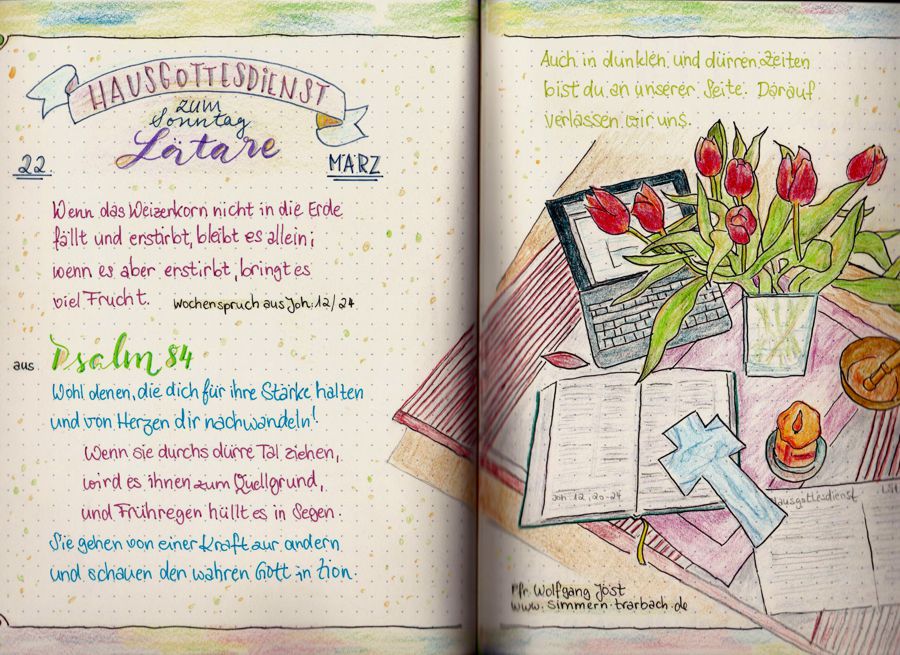 HAUSGOTTESDIENST
zum
Sonntag
Lätare
22. MÄRZ
Wenn das Weizenkorn nicht in die Erde
fällt und erstirbt, bleibt es allein;
wenn es aber erstirbt, bringt es
viel Frucht. Wochenspruch aus Joh. 12/24
aus Psalm 84
Wohl denen, die dich für ihre Stärke halten
und von Herzen dir nachwandeln!
Wenn sie durchs dürre Tal ziehen,
wird es ihnen zum Quellgrund,
und Frühregen hüllt es in Segen.
Sie gehen von einer Kraft zur andern
und schauen den wahren Gott in Zion.
Auch in dunklen und dürren Zeiten
bist du an unserer Seite. Darauf
verlassen wir uns.
Joh. 12, 20-24
Hausgottesdienst
Pfr. Wolfgang Jöst
www.simmern-trarbach.de